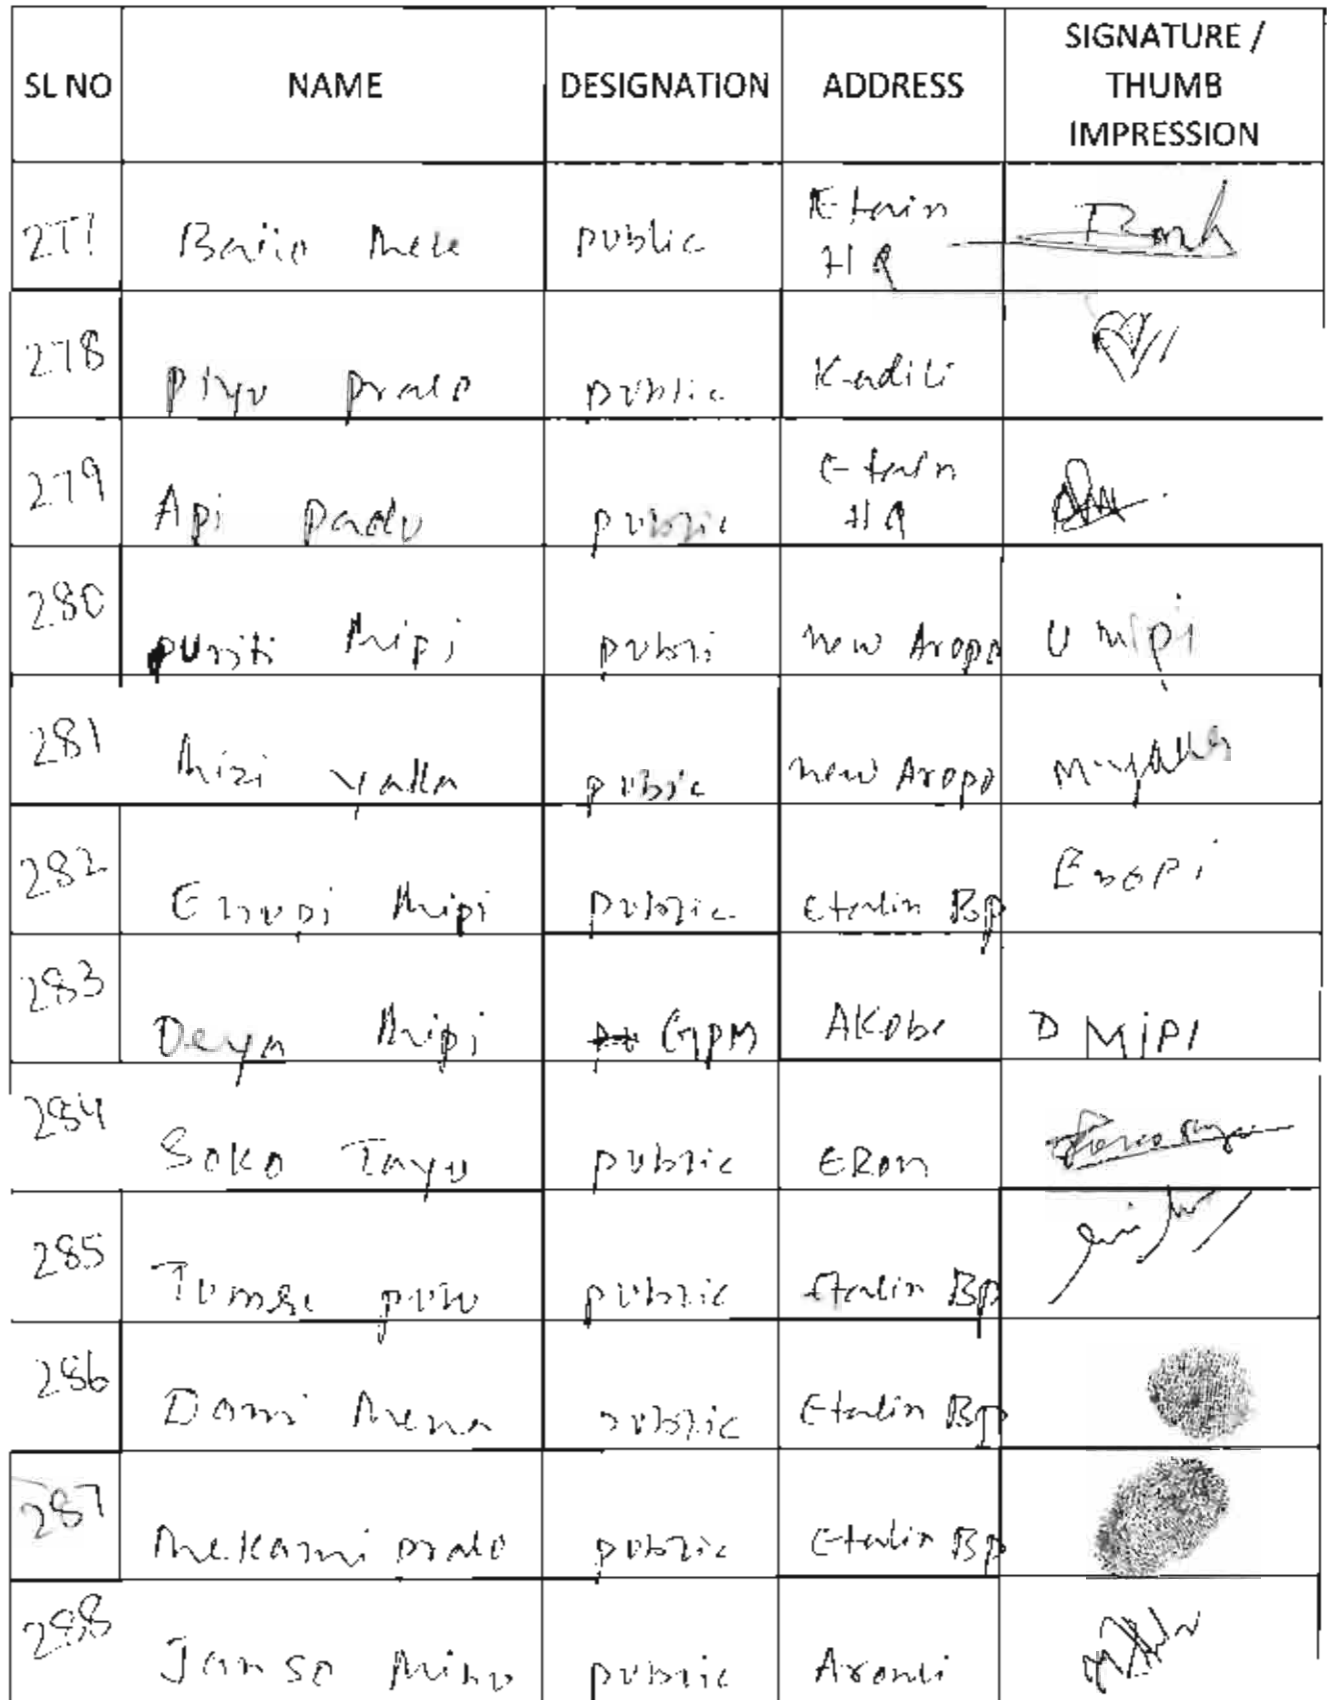 SL NO NAME DESIGNATION ADDRESS SIGNATURE /
THUMB
IMPRESSION
277 Mele public Etalin
HQ
278 Piyu Pralo public Kadili
279 Api Padu public Etalin
HQ
280 Mipi publi New Aropo U Mipi
281 Mizi Yalla public New Aropo M-yalla
282 Mipi public Etalin BP
283 Deya Mipi GPM AKobe D MiPi
284 Soko Tayu public ERON
285 public Etalin BP
286 Dami Mena public Etalin BP
287 Mekami Pralo public Etalin BP
288 Janso public